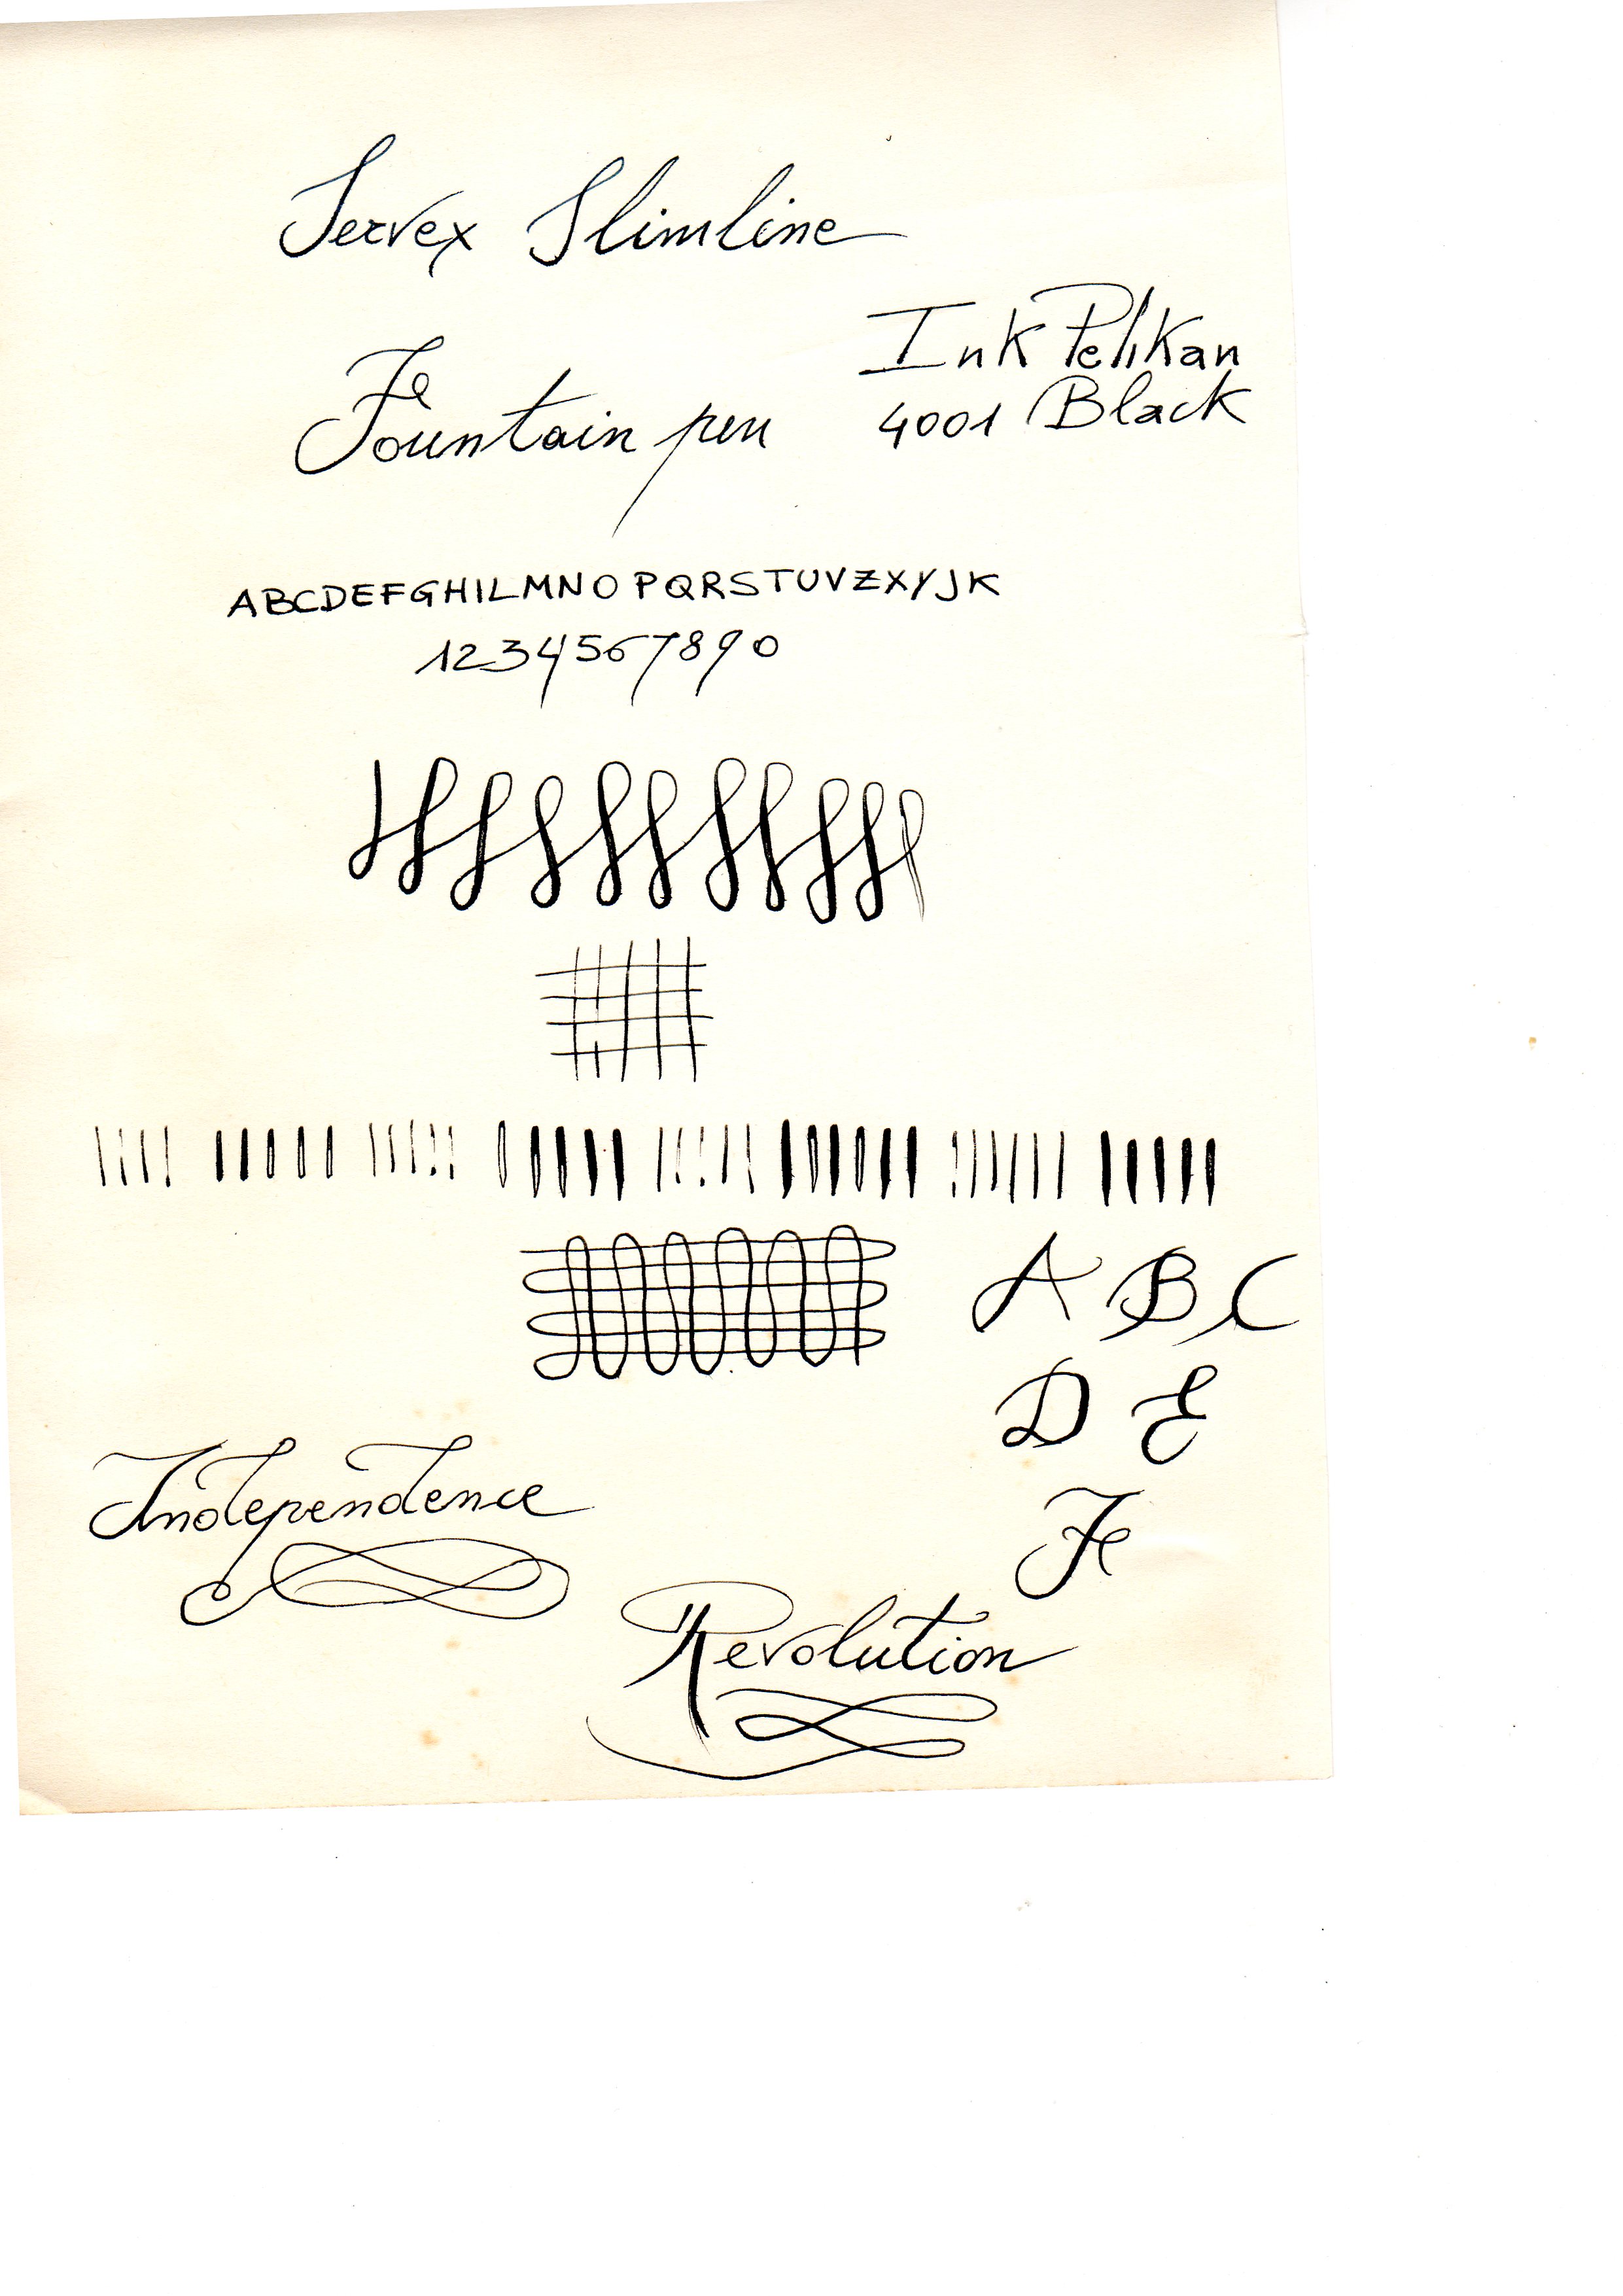 Servex Slimline
Ink Pelikan
Fountain pen
4001 Black
ABCDEFGHILMNOPQRSTUVZXYJK
1234567890
A B C
D E
F
Independence
Revolution